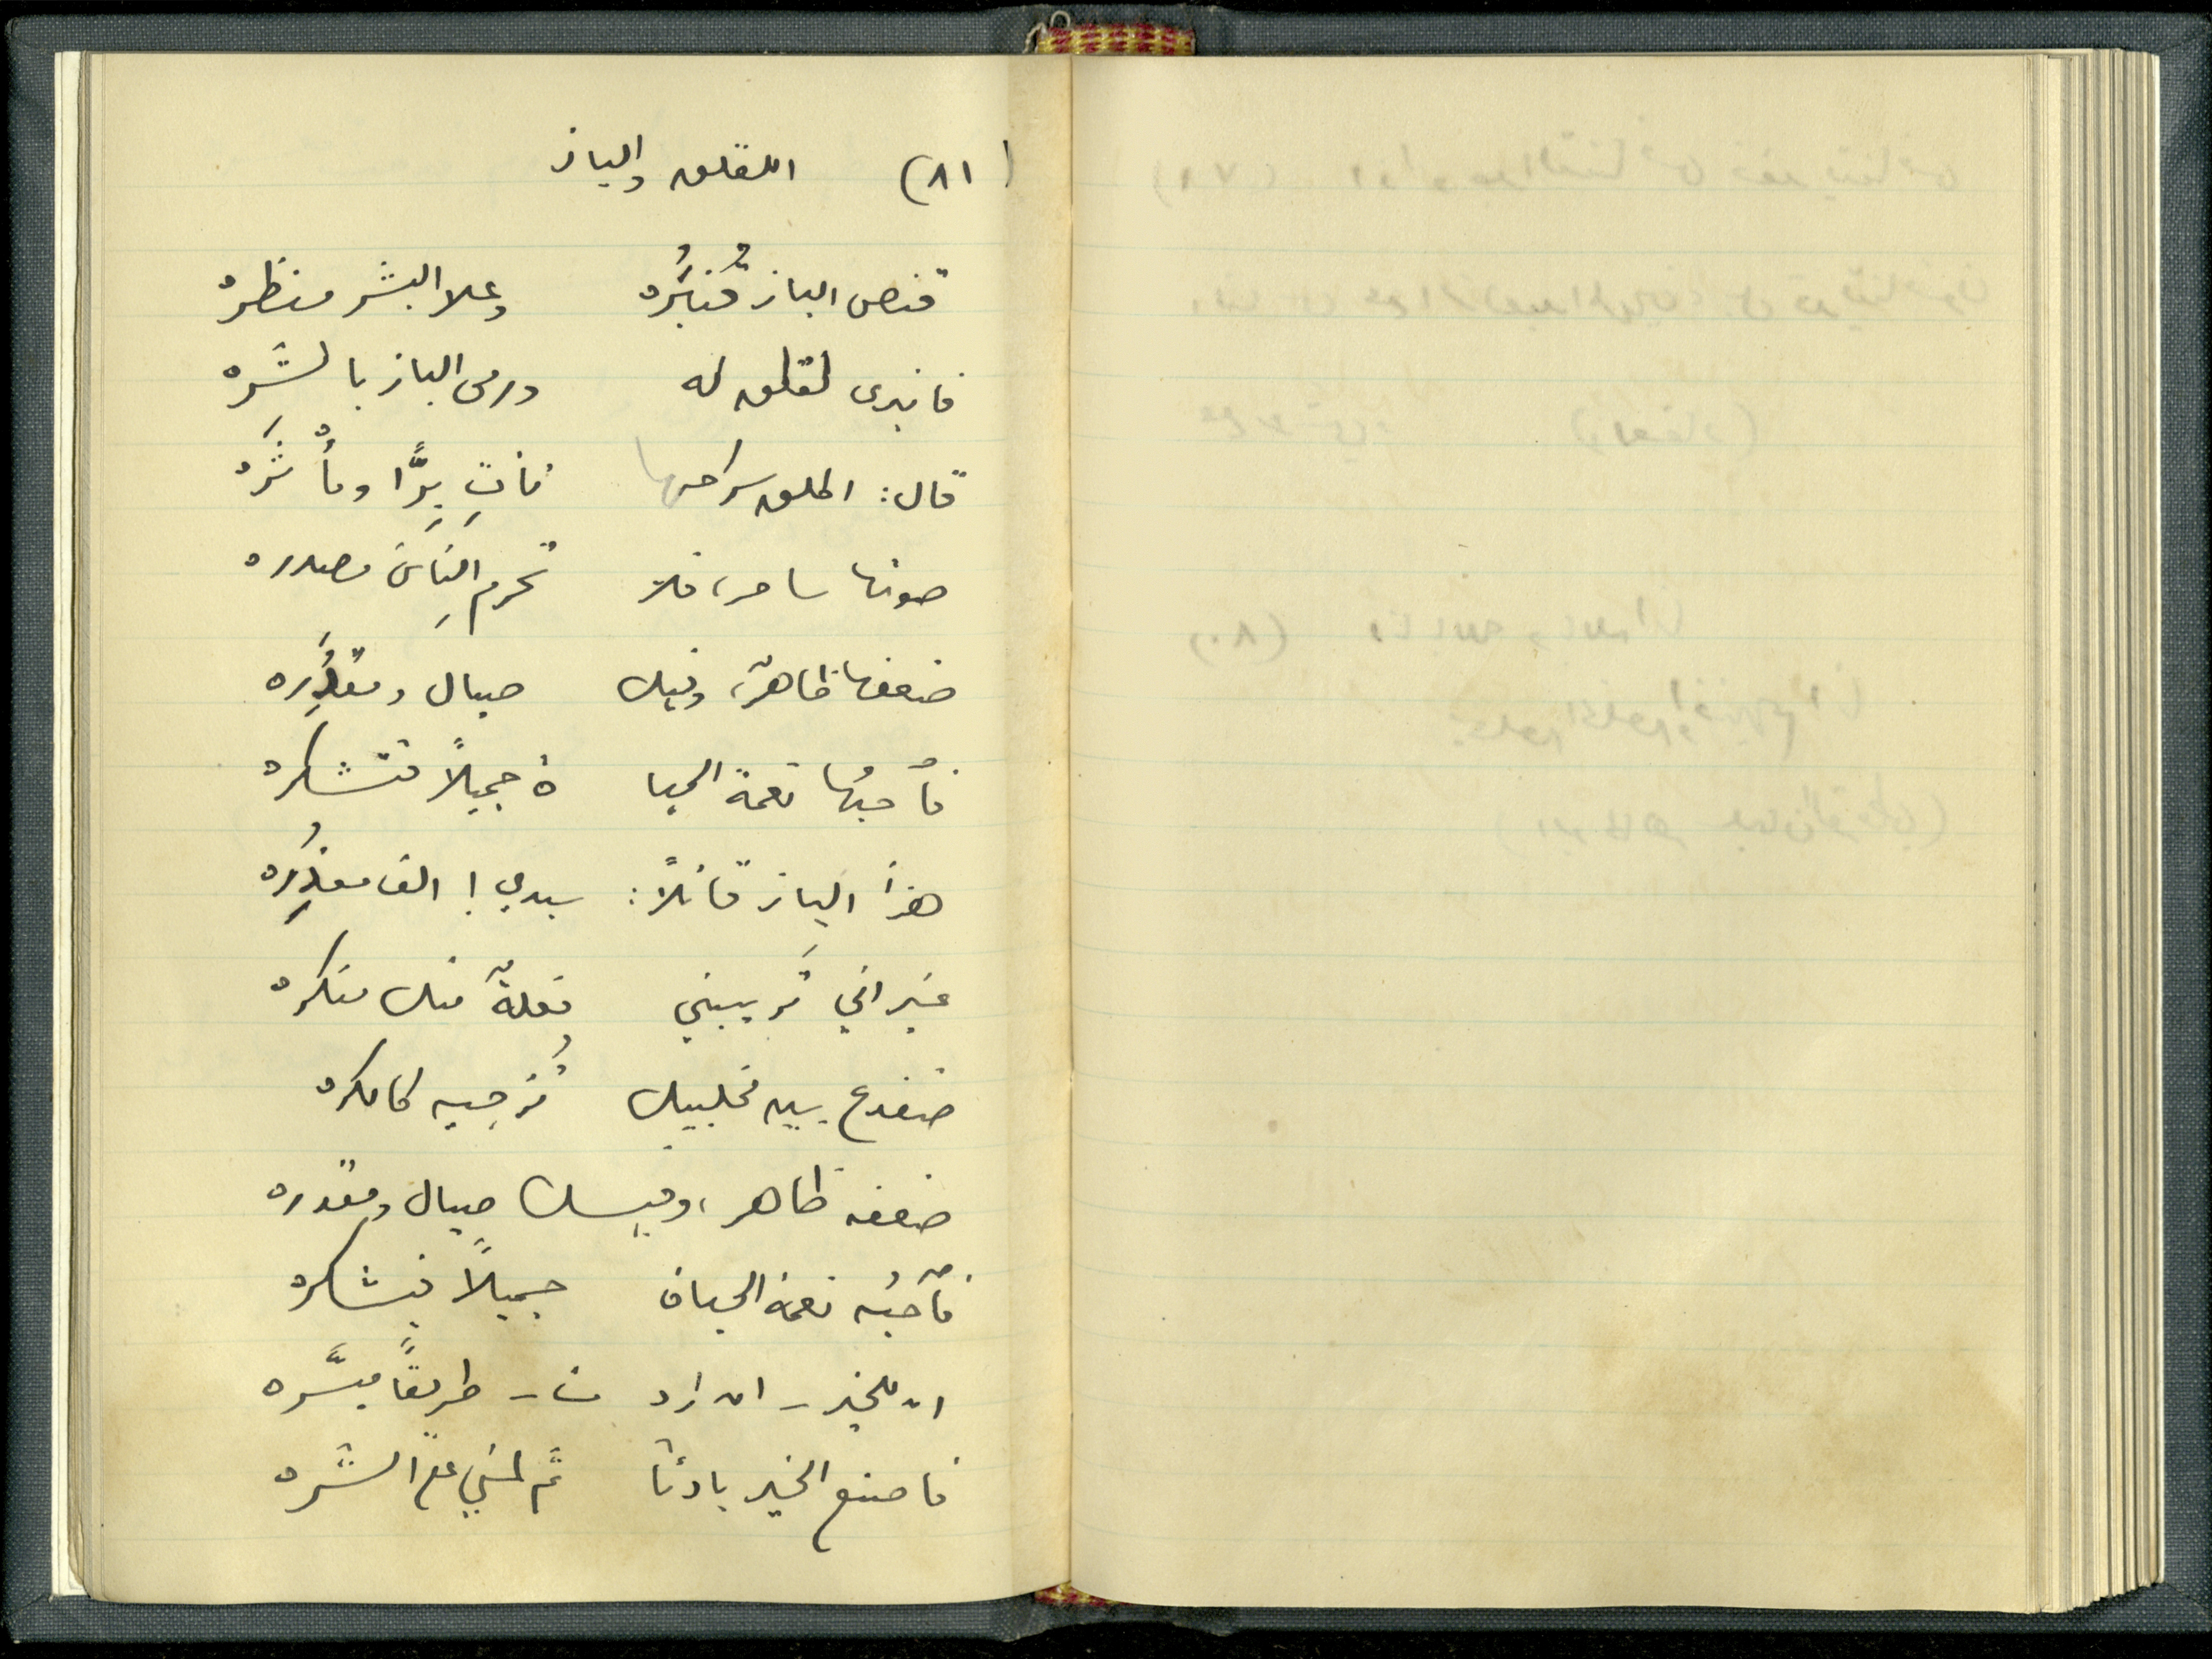 (٨١) اللقلق والباز
قنص الباز قُنبُرَه وعلا البشر منظره
فانبرى لقلق له ورمى الباز بالشَّرَه
قال: اطلق سراحها فأتِ بِرًّا ومأْثَرَه
صوتها ساحر، فلا تحرمِ الناسَ مصدره
ضعفها ظاهرٌ، وفيك صيال ومقدُرَه
فأَحبُها نعمة الحيا ة جميلاً فتشكره
هزأ الباز قائلاً: سيدي! الف معذِرَه
غير اني تَريبني فعلةٌ منك منكره
ضفدع بين مخلبيك تُزجيه كالكره
ضعفه ظاهر، وفيك صيال ومقدره
فآحبُه نعمة الحياة جميلاً فيشكره
ان للخير - ان ارد ت - طريقاً ميسَّره
فاصنع الخير بادئاً ثم لمني على الشَّره